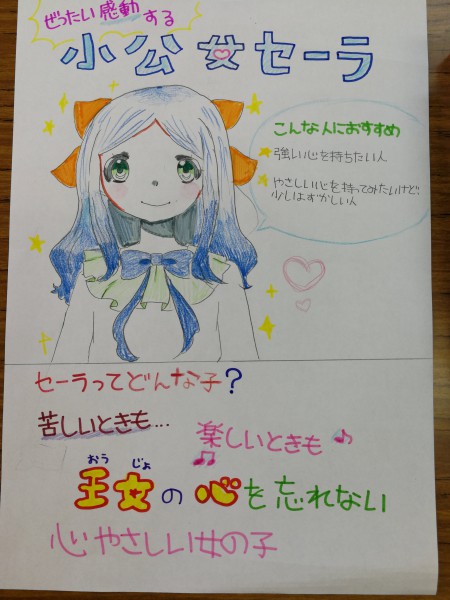 ぜったい感動する
小公女セーラ
こんな人におすすめ
強い心を持ちたい人
やさしい心を持ってみたいけど、
少しはずかしい人
セーラってどんな子?
苦しいときも…
楽しいときも♪
♫
おう じょ
王女の心を忘れない
心やさしい女の子